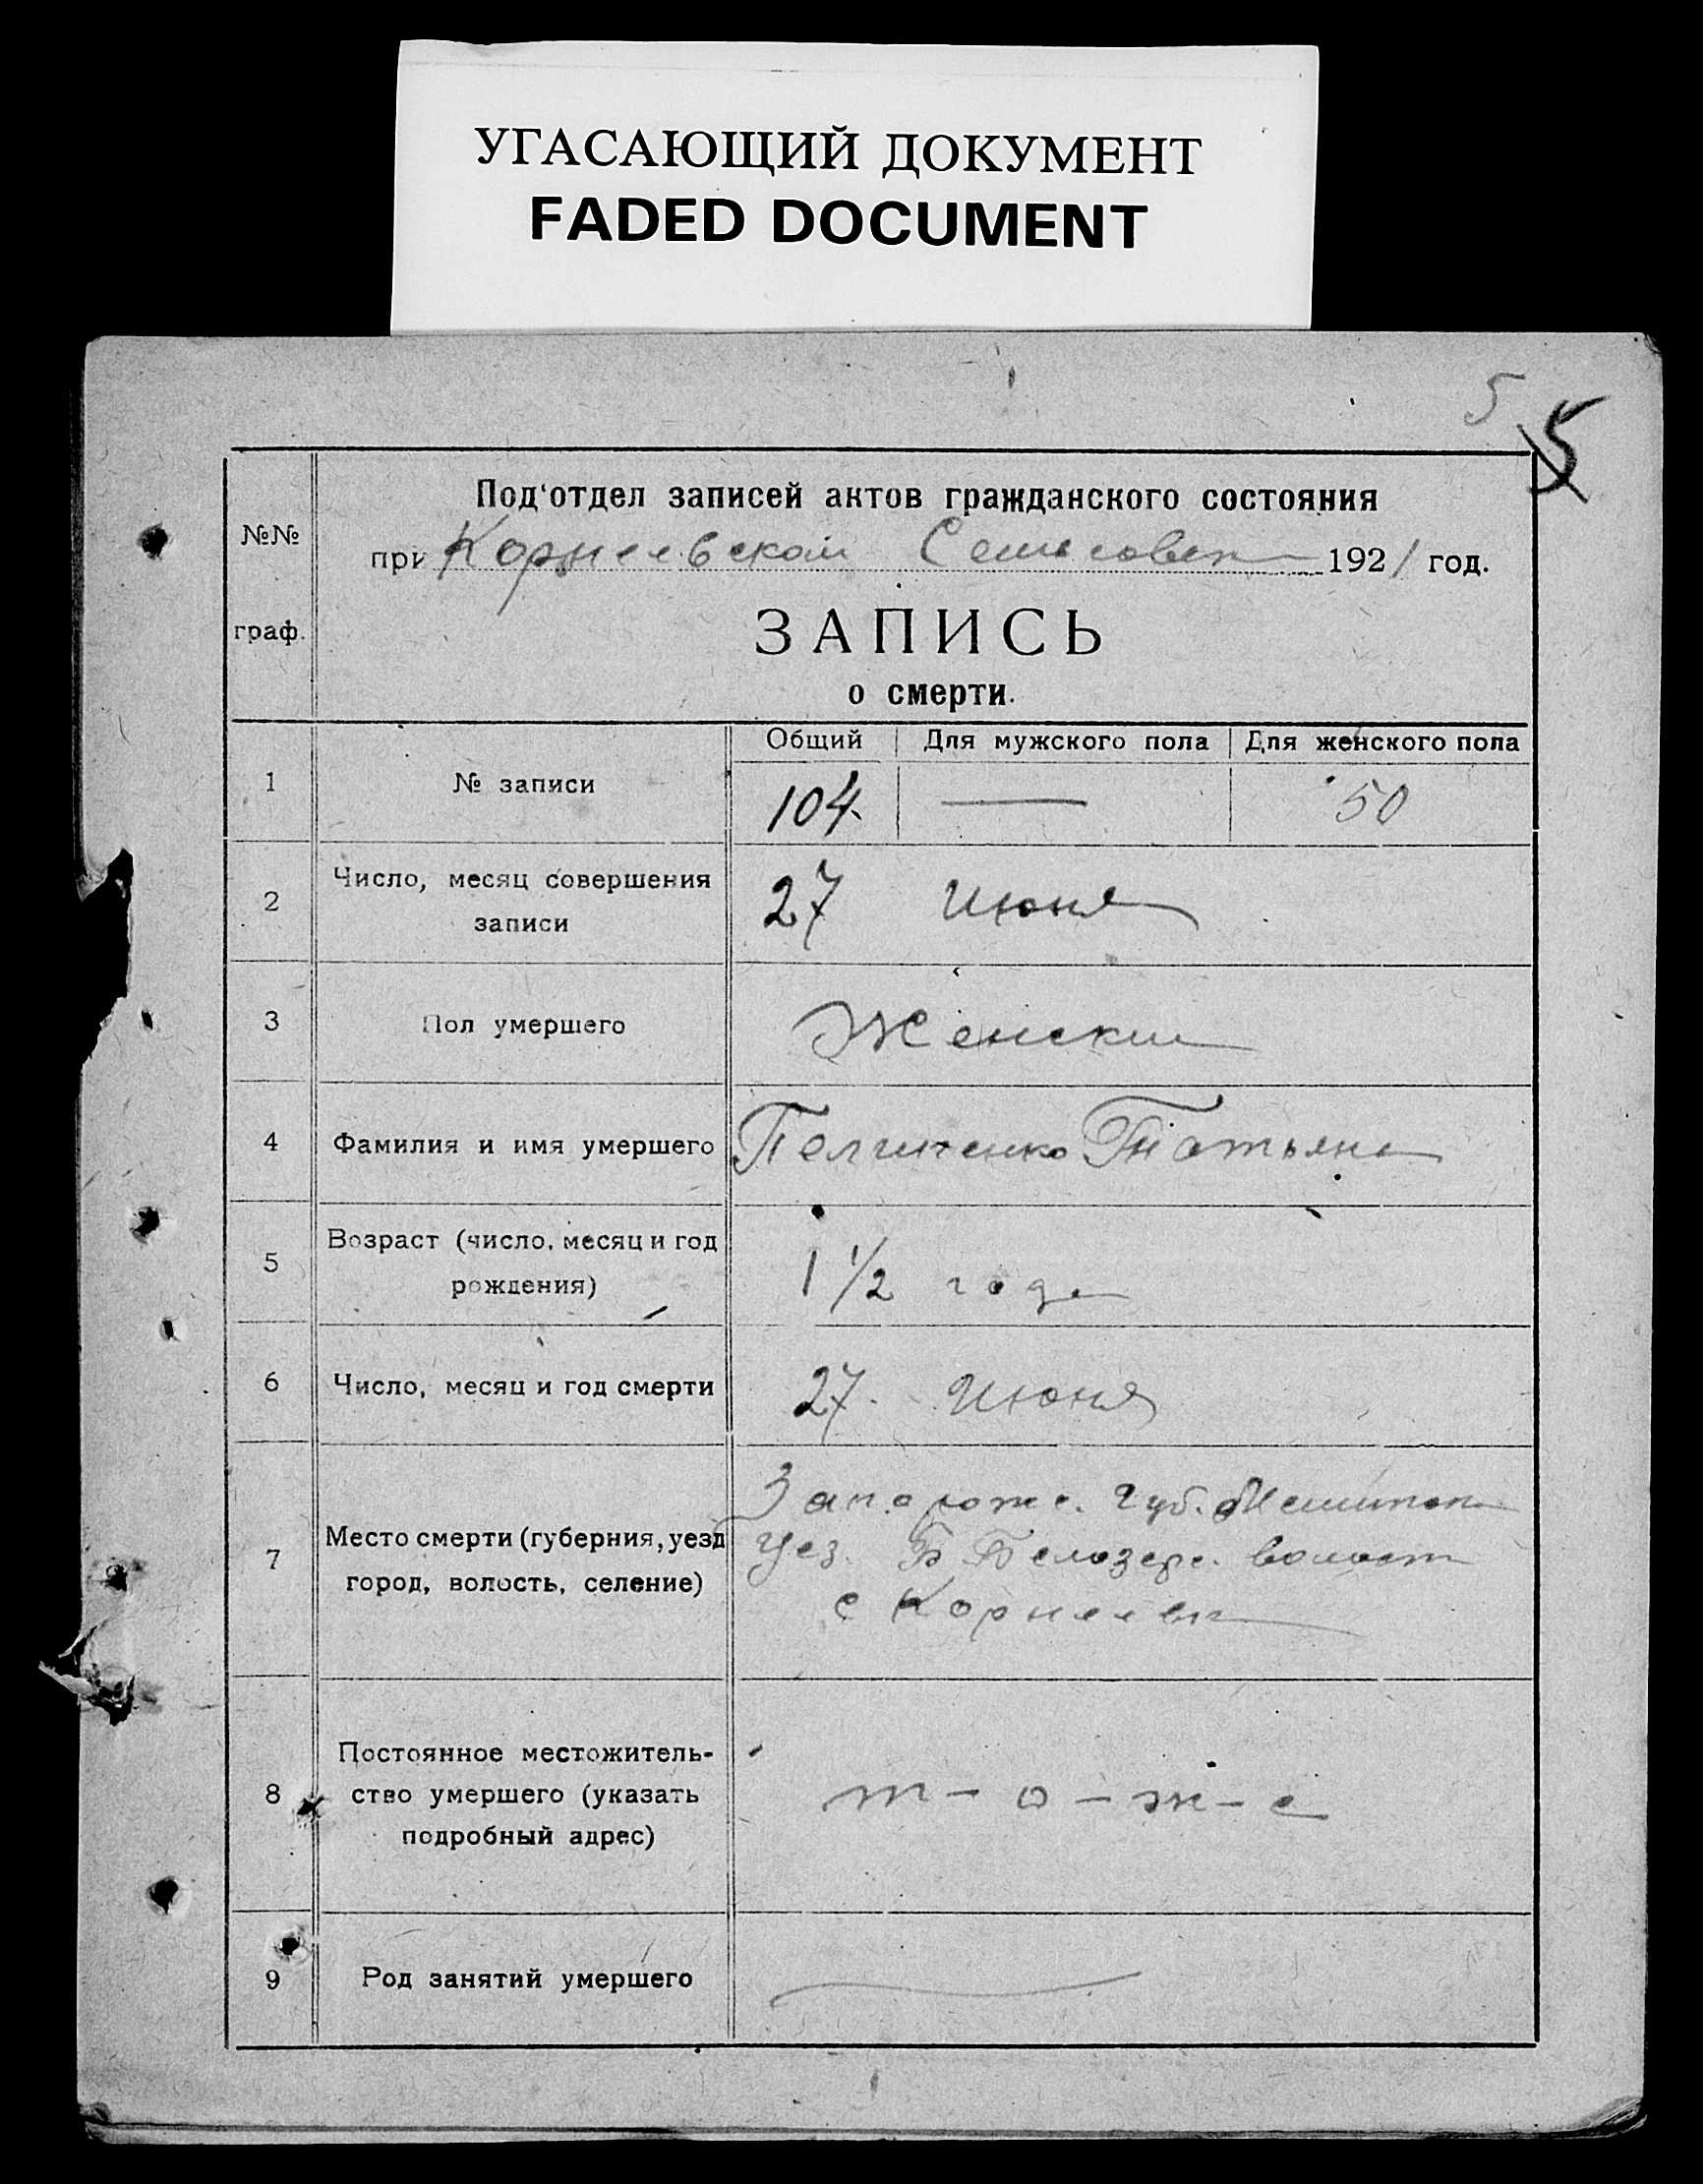 УГАСАЮЩИЙ ДОКУМЕНТ
FADED DOCUMENT
5
5
№№
граф.
Под'отдел записей актов гражданского состояния
при Корнеевском Сельсовет 1921 год.
ЗАПИСЬ
о смерти.
Общий Для мужского пола Для женского пола
1 № записи 104. — 50
2 Число, месяц совершения
записи
27 Июня
3 Пол умершего Женский
4 Фамилия и имя умершего Татьяна
5 Возраст (число, месяц и год
рождения)
1 1/2 года
6 Число, месяц и год смерти 27. Июня
7 Место смерти (губерния, уезд
город, волость, селение)
Запорожс. Губ.
Уез. Б Белозерс. волост
с Корнеевк
8 Постоянное местожитель-
ство умершего (указать
подробный адрес)
т - о - ж - е
9 Род занятий умершего